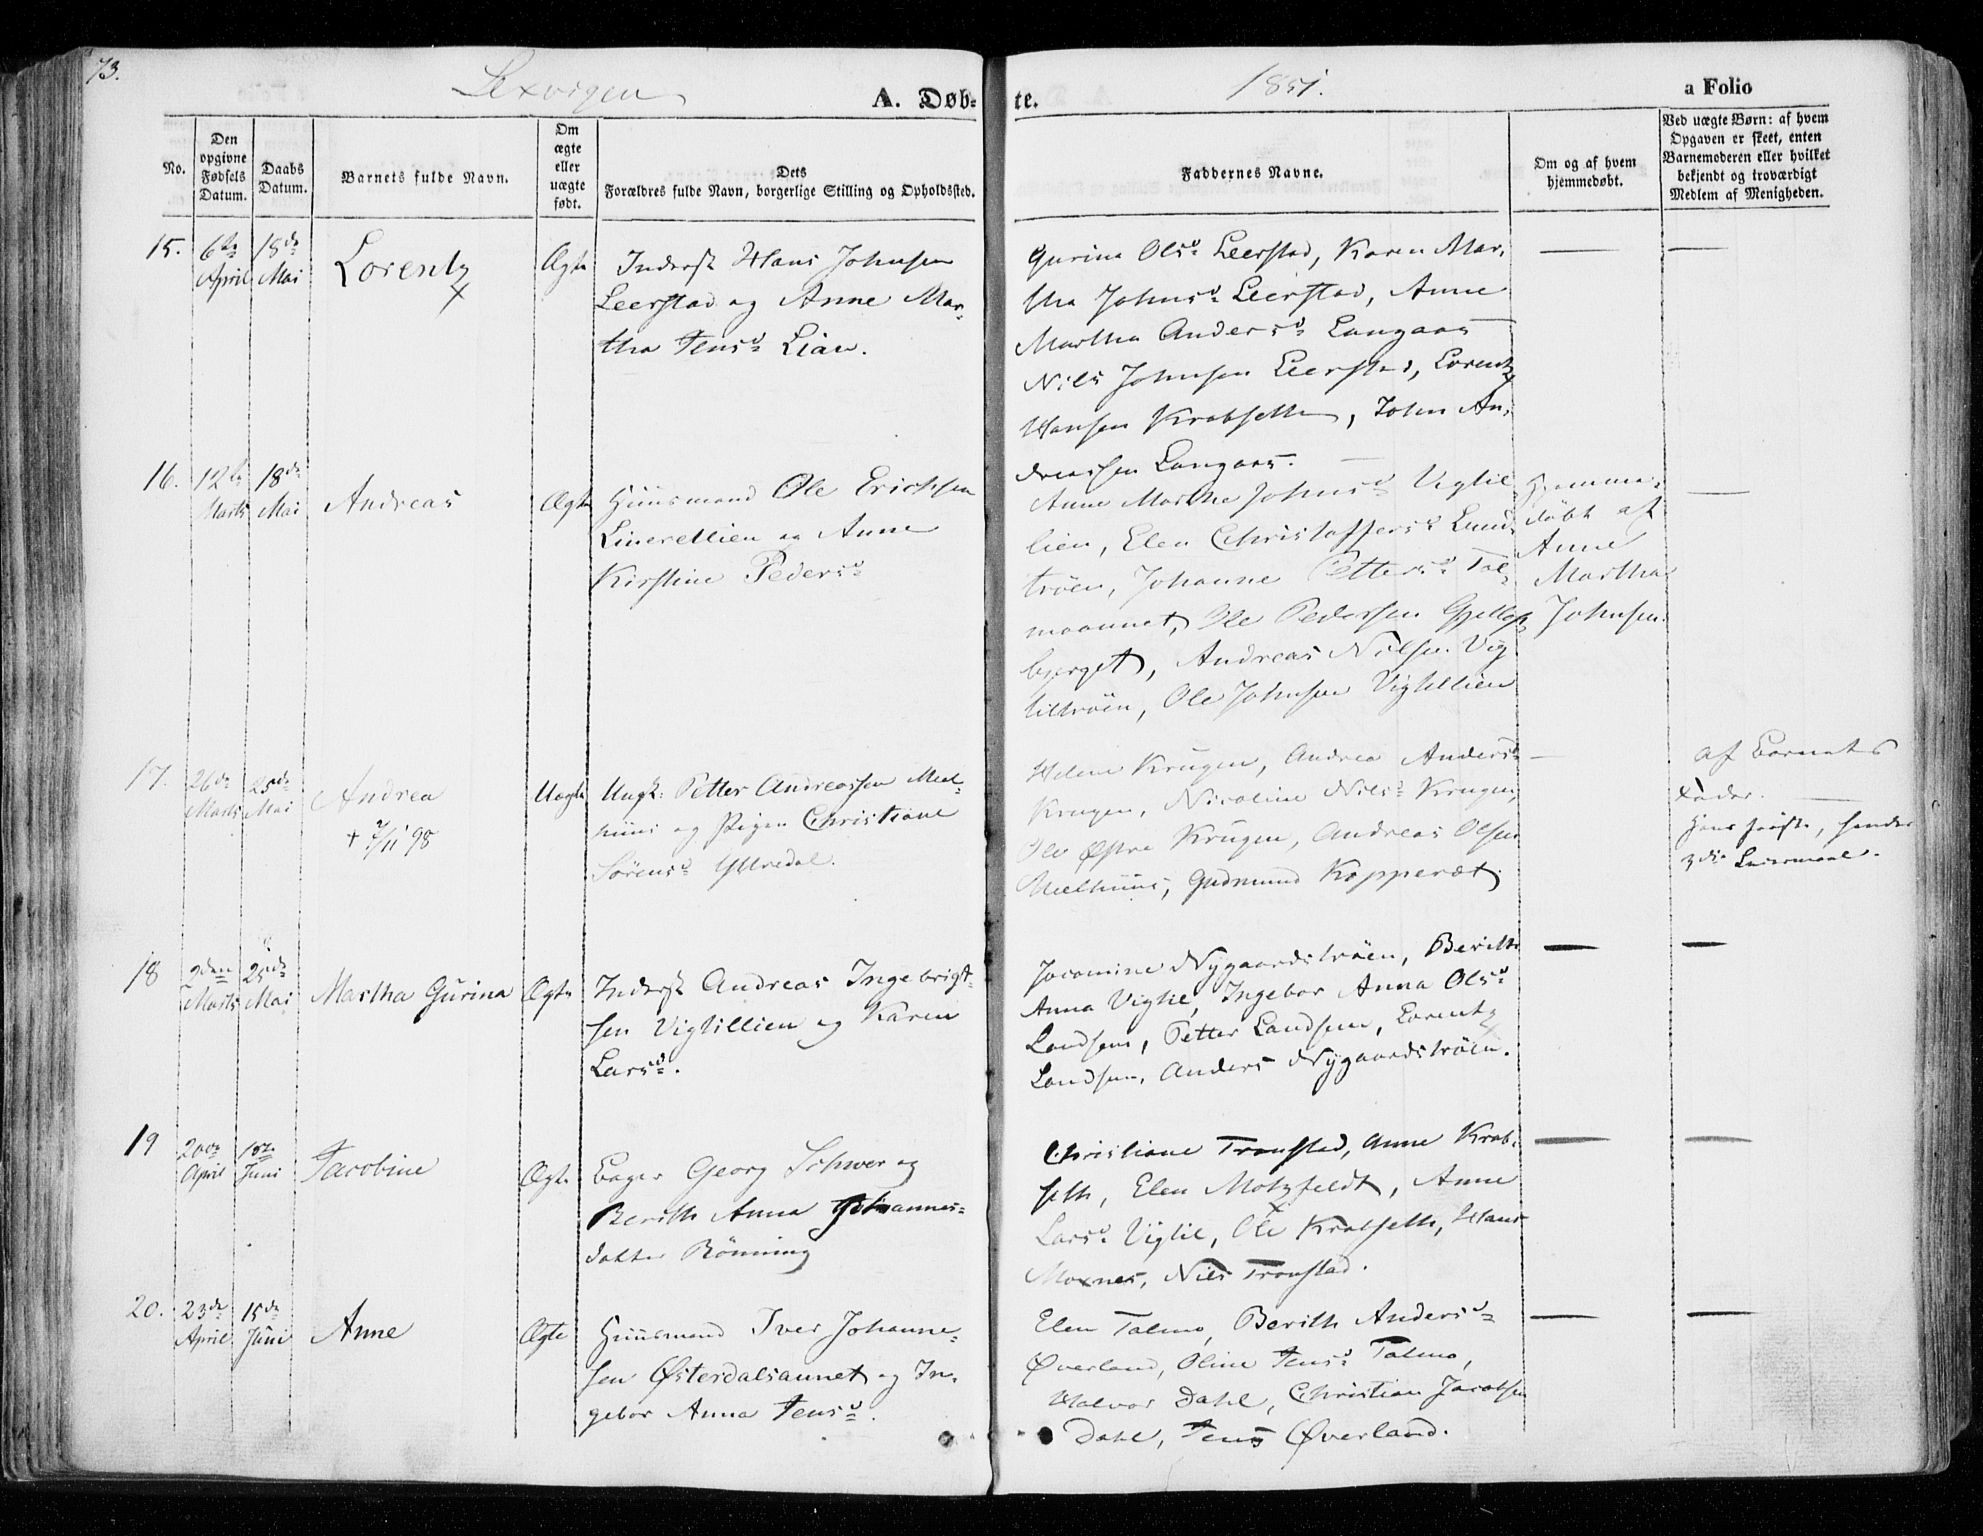 73.
Lexvigen
A. Døb-
te.
1851.
a Folio
No.
Den opgivne Fødsels Datum.
Daabs Datum.
Barnets fulde Navn.
Om ægte eller uægte født.
Dets
Forældres fulde Navn, borgerlige Stilling og Opholdssted.
Faddernes Navne.
Om og af hvem hjemmedøbt.
Ved uægte Børn: af hvem Opgaven er skeet, enten Barnemoderen eller hvilket bekjendt og troværdigt Medlem af Menigheden.
15.
6te April
18de Mai
Lorentz
Ægte
Inderst Hans Johnsen
Leerstad og Anne Mar-
tha Jensd. Lian.
Gurina Olsd. Leerstad, Karen Mar-
tha Johnsd. Leerstad, Anne
Martha Andersd. Langaas
Nils Johnsen Leerstad, Lorentz
Hansen Krabseth, John An-
dreassen Langaas. —
16.
12te Marts
18de Mai
Andreas
Ægte
Huusmand Ole Ericksen
og Anne
Kirstine Pedersd.
Anne Martha Johnsd. Viglil
lien, Elen Christoffersd. Lund-
trøen, Johanne Pettersd. Tal-
moannet, Ole Pedersen
bjerget, Andreas Nilsen Vig
liltrøen, Ole Johnsen Viglillien
Hjemme-
døbt af
Anne
Martha
Johnsen.
17.
26de Marts
25de Mai
Andrea
+ 7/11 98
Uægte
Ungk: Petter Andreassen Meel-
huus og Pigen Christiane
Sørensd. Yttredal.
Helene Krugen, Andrea Andersd.
Krugen, Nicoline Nilsd. Krugen,
Ole Østre Krugen, Andreas Olsen
Meelhuus, Gudmund Kopperæt.
af Barnets
Fader. —
Hans første, hendes
3die Leiermaal.
18
9den Marts
25de Mai
Martha Gurina
Ægte
Inderst Andreas Ingebrigt-
sen Viglillien og Karen
Larsd.
Jocomine Nygaardstrøen, Berith
Anna Viglil, Ingebor Anna Olsd.
Landsem, Petter Landsem, Lorentz
Landsem, Anders Nygaardstrøen.
19
20de April
15de Juni
Jacobine
Ægte
Bager Georg Schwer og
Berith Anna Johannes-
datter Rønning
Christiane Tronstad, Anne Krab-
seth, Elen Motzfeldt, Anne
Larsd. Viglil, Ole Krabseth, Hans
Moxnes, Nils Tronstad.
20.
23de April
15de Juni
Anne
Ægte
Huusmand Iver Johanne-
sen Østerdalsaunet og In-
gebor Anna Jensd.
Elen Talmo, Berith Andersd.
Øverland, Oline Jensd. Talmo,
Halvor Dahl, Christian Jacobsen
Dahl, Jens Øverland.